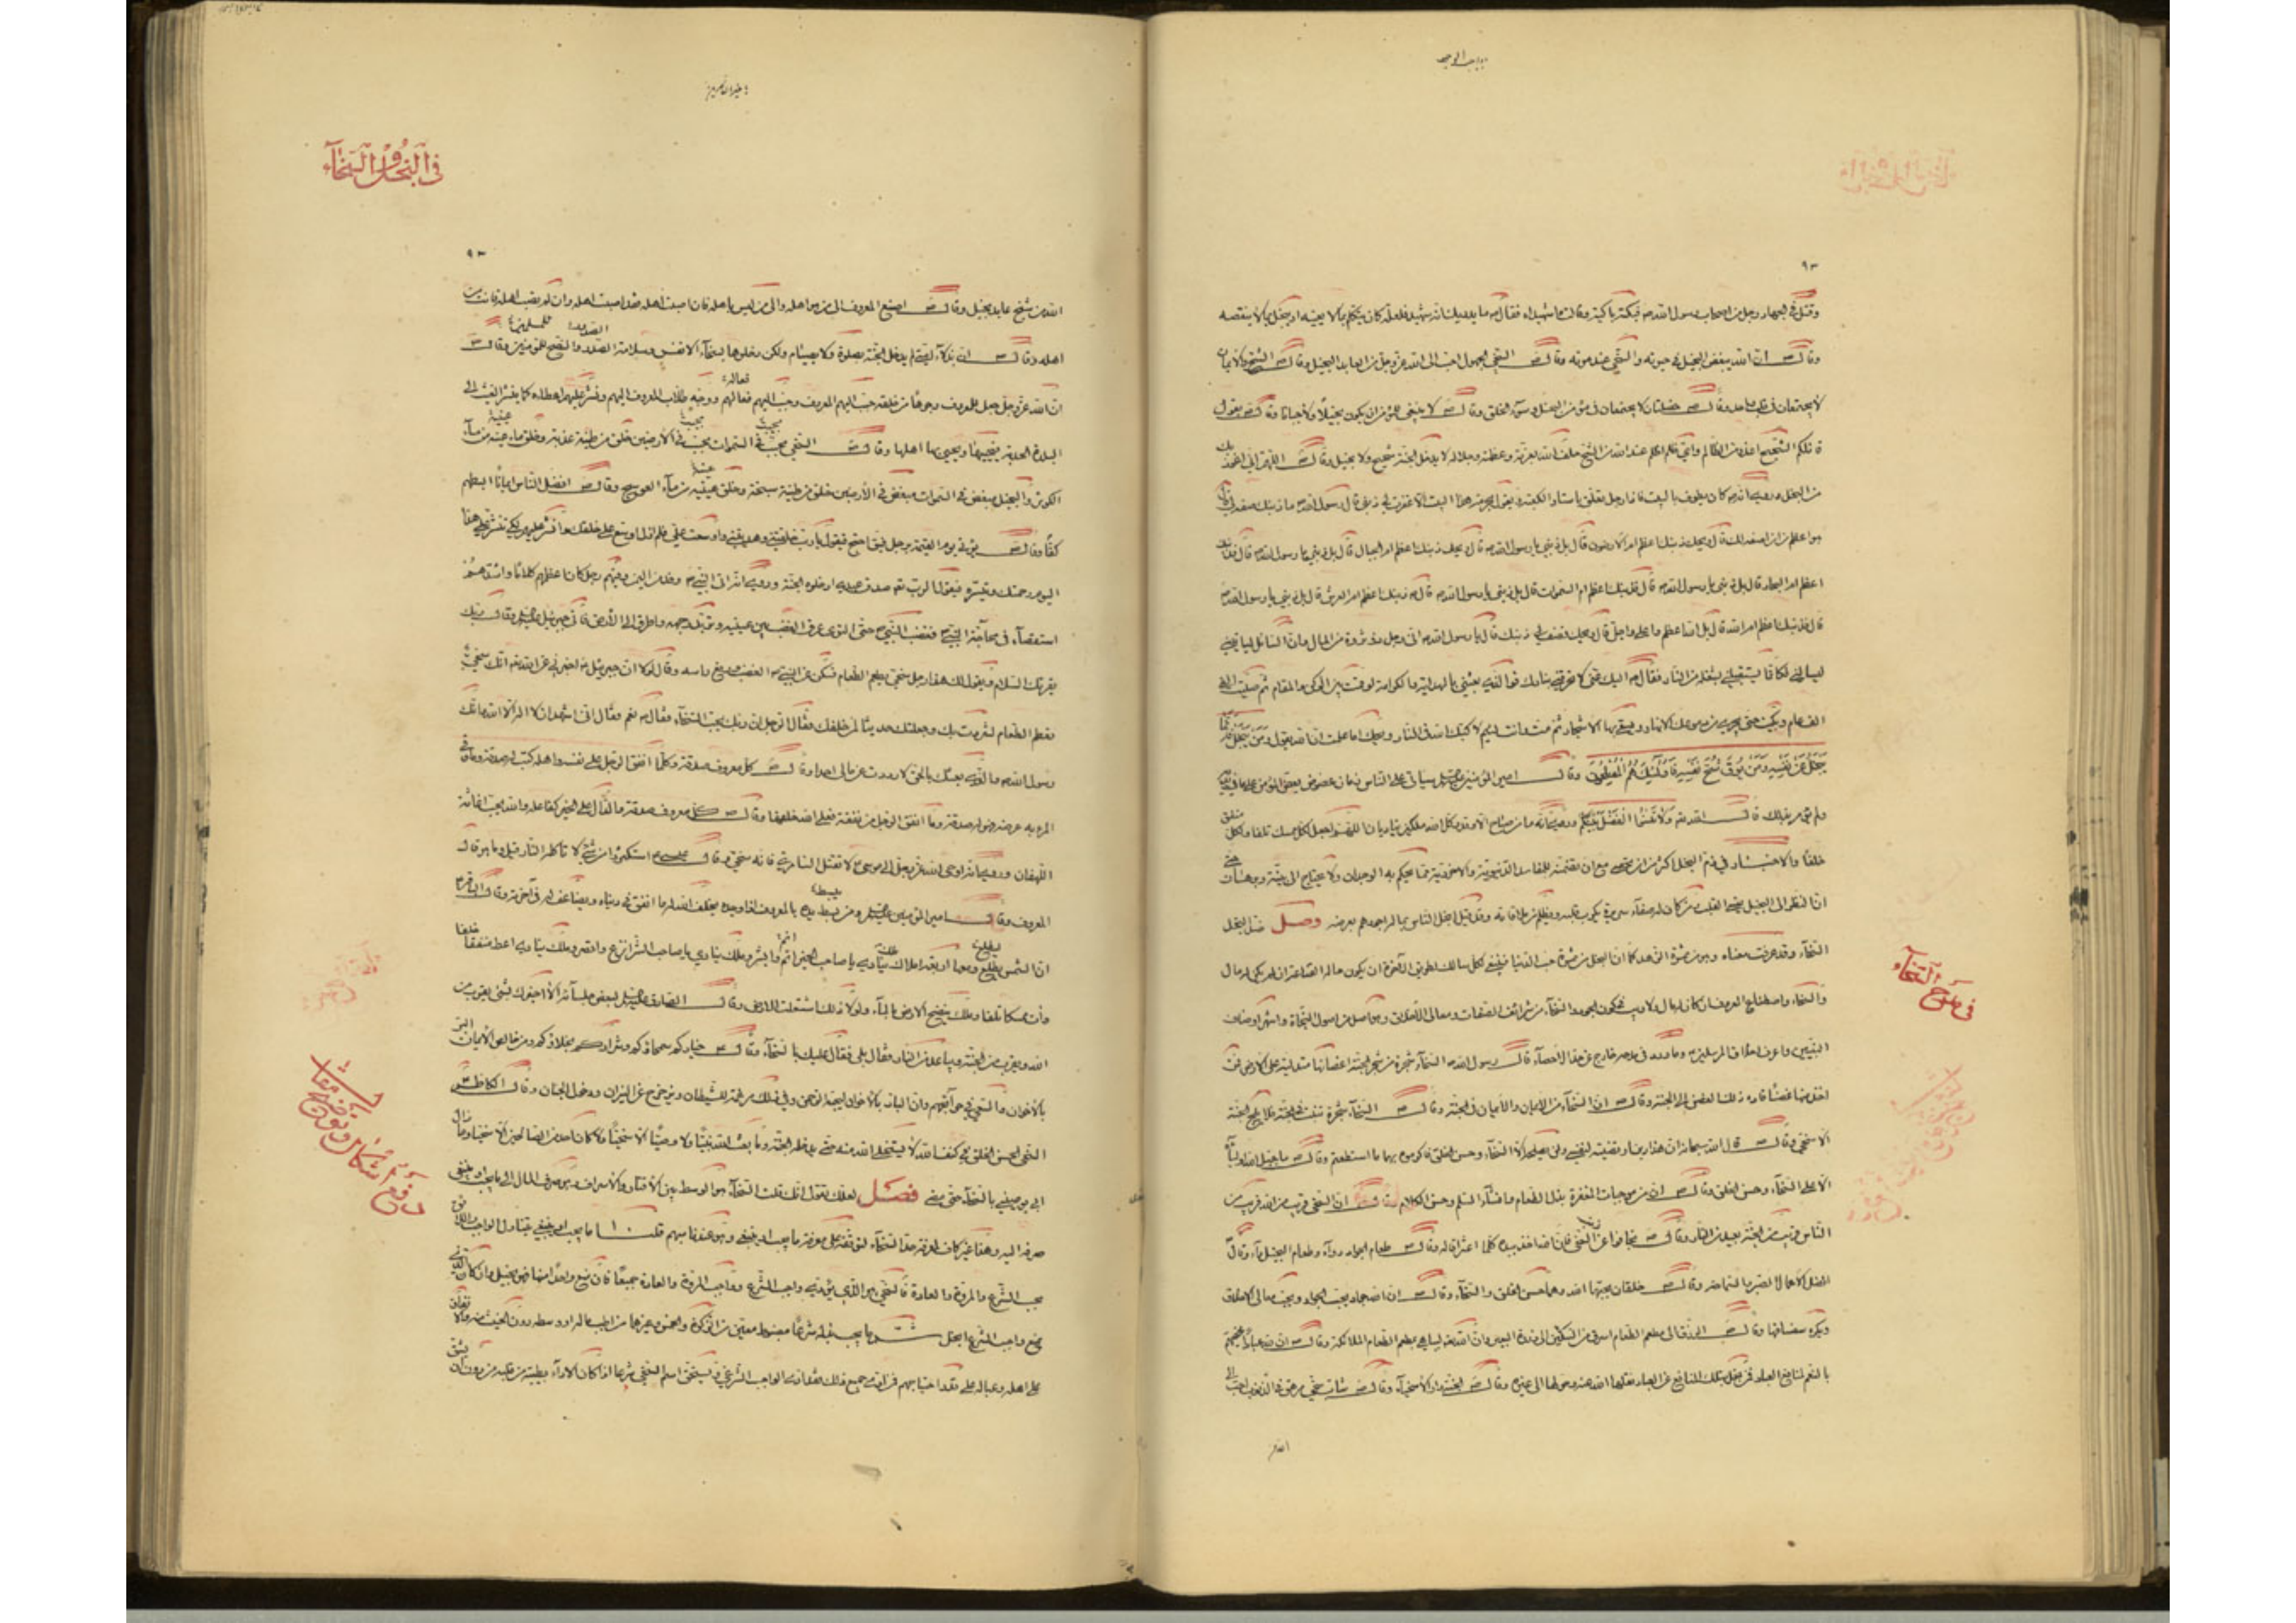 ٩٣
وقتل في الجهاد رجل من اصحاب رسول الله ص فبكته باكية وقالت وا شهيداه فقال ص ما يدريك انه شهيد فلعله كان يتكلم بما لا يعنيه او يبخل بما لا ينقصه
وقال ص ان الله يبغض البخيل في حيوته والسخي عند موته وقال ص السخي الجهول احب الى الله عز وجل من العابد البخيل وقال ص الشح والايمان
لا يجتمعان في قلب واحد وقال ص خصلتان لا يجتمعان في مؤمن البخل وسوء الخلق وقال ص لا ينبغي للمؤمن ان يكون بخيلا ولا جبانا وقال ص يقول
قائلكم الشحيح اعذر من الظالم واي ظلم اظلم عند الله من الشح حلف الله بعزته وعظمته وجلاله لا يدخل الجنة شحيح ولا بخيل وقال ص اللهم اني اعوذ بك
من البخل وروي انه ص كان يطوف بالبيت فاذا رجل متعلق باستار الكعبة وهو يقول بحرمة هذا البيت الا غفرت لي ذنبي قال رسول الله ص ما ذنبك صفه لي قال
هو اعظم من ان اصفه لك قال ويحك ذنبك اعظم ام الارضون قال بل ذنبي يا رسول الله ص قال ويحك ذنبك اعظم ام الجبال قال بل ذنبي يا رسول الله ص قال فذنبك
اعظم ام البحار قال بل ذنبي يا رسول الله ص قال فذنبك اعظم ام السموات قال بل ذنبي يا رسول الله ص قال ص ذنبك اعظم ام العرش قال بل ذنبي يا رسول الله ص
قال فذنبك اعظم ام الله قال بل الله اعظم واعلى واجل قال ويحك فصف لي ذنبك قال يا رسول الله ص اني رجل ذو ثروة من المال وان السائل لياتيني
ليسالني فكانما يستقبلني بشعلة من النار فقال ص اليك عني لا تحرقني بنارك فوالذي بعثني بالهداية والكرامة لو قمت بين الركن والمقام ثم صليت الفي
الف عام وبكيت حتى يجري من دموعك الانهار ويسقى بها الاشجار ثم مت وانت لئيم لاكبك الله في النار ويحك اما علمت ان الله يقول ومن يبخل فانما
يبخل عن نفسه ومن يوق شح نفسه فاولئك هم المفلحون وقال امير المؤمنين سياتي على الناس زمان عضوض يعض المؤمن على ما في يديه
ولم يؤمر بذلك قال الله تعالى ولا تنسوا الفضل بينكم وروي انه ما من صباح الا وقد وكل الله ملكين يناديان اللهم اجعل لكل ممسك تلفا ولكل منفق
خلفا والاخبار في ذم البخل اكثر من ان تحصى مع ان تضمنه للمفاسد الدنيوية والاخروية مما يحكم به الوجدان ولا يحتاج الى بينة وبرهان حتى
ان النظر الى البخيل يقسي القلب ومن كان له صفاء سريرة يكرب قلبه ويظلم من ملاقاته وقد قيل ابخل الناس بماله اجودهم بعرضه وصل ضد البخل
السخاء وقد عرفت معناه وهو من ثمرة الزهد كما ان البخل من ثمرة حب الدنيا فينبغي لكل سالك لطريق الآخرة ان يكون حاله القناعة ان لم يكن له مال
والسخاء واصطناع المعروف ان كان له مال ولا ريب في كون الجود والسخاء من شرائف الصفات ومعالي الاخلاق وهو اصل من اصول النجاة واشهر اوصاف
النبيين واعرف اخلاق المرسلين وما ورد في مدحه خارج عن حد الاحصاء قال رسول الله ص السخاء شجرة من شجر الجنة اغصانها متدلية على الارض فمن
اخذ منها غصنا قاده ذلك الغصن الى الجنة وقال ص ان السخاء من الايمان والايمان في الجنة وقال ص السخاء شجرة تنبت في الجنة فلا يلج الجنة
الا سخي وقال ص قال الله سبحانه ان هذا دين ارتضيته لنفسي ولن يصلحه الا السخاء وحسن الخلق فاكرموه بهما ما استطعتم وقال ص ما جبل الله اولياءه
الا على السخاء وحسن الخلق وقال ص ان من موجبات المغفرة بذل الطعام وافشاء السلم وحسن الكلام وقال ص ان السخي قريب من الله قريب من
الناس قريب من الجنة بعيد من النار وقال ص تجافوا عن ذنب السخي فان الله اخذ بيده كلما اعثر اقاله وقال ص طعام الجواد دواء وطعام البخيل داء وقال ص
افضل الاعمال الصبر والسماحة وقال ص خلقان يحبهما الله وهما حسن الخلق والسخاء وقال ص ان الله جواد يحب الجواد ويحب معالي الاخلاق
ويكره سفسافها وقال ص الرزق الى مطعم الطعام اسرع من السكين الى ذروة البعير وان الله تعالى ليباهي بمطعم الطعام الملائكة وقال ص ان لله عبادا يخصهم
بالنعم لمنافع العباد فمن بخل بتلك المنافع عن العباد نقلها الله عنه وحولها الى غيره وقال ص الجنة دار الاسخياء وقال ص شاب سخي مرهق في الذنوب احب الى
الله من
في مدح السخاء
في البخل والسخاء
٩٣
الله من شيخ عابد بخيل وقال ص اصنع المعروف الى من هو اهله والى من ليس باهله فان اصبت اهله فقد اصبت اهله وان لم تصب اهله فانت من
اهله وقال ص ان بدلاء امتي لم يدخلوا الجنة بصلوة ولا بصيام ولكن دخلوها بسخاء الانفس وسلامة الصدور والنصح للمؤمنين وقال ص
ان الله عز وجل جعل للمعروف وجوها من خلقه حبب اليهم المعروف وحبب اليهم فعالهم ووجه طلاب المعروف اليهم ويسر عليهم اعطاءه كما ييسر الغيث الى
البلدة الجدبة فيحييها ويحيي بها اهلها وقال ص السخي محبب في السموات محبب في الارضين خلق من طينة عذبة وخلق ماء عينيه من ماء
الكوثر والبخيل مبغض في السموات مبغض في الارضين خلق من طينة سبخة وخلق ماء عينيه من ماء العوسج وقال ص افضل الناس ايمانا ابسطهم
كفا وقال ص يؤتى يوم القيمة برجل فيق احتج فيقول يا رب خلقتني وهديتني واوسعت علي فلم ازل اوسع على خلقك وانشر عليهم لكي تنشر علي هذا
اليوم رحمتك وتيسره فيقول الرب تعالى صدق عبدي ادخلوه الجنة وروي انه اتى النبي ص وفد من اليمن وفيهم رجل كان اعظمهم كلاما واشدهم
استقصاء في محاجة النبي ص فغضب النبي ص حتى التوى عرق الغضب بين عينيه وتربد وجهه واطرق الى الارض فاتى جبرئيل وقال ربك
يقرئك السلام ويقول لك هذا رجل سخي يطعم الطعام فسكن عن النبي ص الغضب ورفع راسه وقال لولا ان جبرئيل اخبرني عن الله تعالى انك سخي
تطعم الطعام لشردت بك وجعلتك حديثا لمن خلفك فقال الرجل ان ربك يحب السخاء فقال ص نعم فقال اني اشهد ان لا اله الا الله وانك
رسول الله ص والذي بعثك بالحق لا رددت عن مالي احدا وقال ص كل معروف صدقة وكلما انفق الرجل على نفسه واهله كتب له صدقة وما وقى
المرء به عرضه فهو له صدقة وما انفق الرجل من نفقة فعلى الله خلفها وقال ص كل معروف صدقة والدال على الخير كفاعله والله يحب اغاثة
اللهفان وروي انه اوحى الله عز وجل الى موسى لا تقتل السامري فانه سخي وقال عيسى استكثروا من شيء لا تاكله النار قيل وما هو قال
المعروف وقال امير المؤمنين ومن يبسط يده بالمعروف اذا وجده يخلف الله له ما انفق في دنياه ويضاعف له في آخرته وقال الباقر
ان الشمس لتطلع ومعها اربعة املاك ملك ينادي يا صاحب الخير اتم وابشر وملك ينادي يا صاحب الشر انزع واقصر وملك ينادي اعط منفقا خلفا
وآت ممسكا تلفا وملك ينضح الارض بالماء ولولا ذلك اشتعلت الارض وقال الصادق لبعض جلسائه الا اخبرك بشيء يقرب من
الله ويقرب من الجنة ويباعد من النار فقال بلى فقال عليك بالسخاء وقال ص خياركم سمحاؤكم وشراركم بخلاؤكم ومن خالص الايمان البر
بالاخوان والسعي في حوائجهم وان البار بالاخوان ليحبه الرحمن وفي ذلك مرغمة للشيطان وتزحزح عن النيران ودخول الجنان وقال الكاظم
السخي الحسن الخلق في كنف الله لا يستخلي الله منه حتى يدخله الجنة وما بعث الله نبيا ولا وصيا الا سخيا ولا كان احد من الصالحين الا سخيا وما زال
ابي يوصيني بالسخاء حتى مضى فصل لعلك تقول انك قلت السخاء هو الوسط بين الاقتار والاسراف وهو صرف المال الى ما يجب او ينبغي
صرفه اليه وهذا غير كاف لمعرفة حد السخاء لتوقفه على معرفة ما يجب او ينبغي وهو عندنا مبهم قلت ما يجب او ينبغي يتناول الواجب
في الشرع والمروة والعادة فالسخي هو الذي يؤدي واجب الشرع وواجب المروة والعادة جميعا فان منع واحدا منها فهو بخيل وان كان الذي
يمنع واجب الشرع ابخل ثم ما يجب بذله شرعا مضبوط معين من الزكوة والخمس وغيرهما من اطيب ماله او وسطه دون الخبيث منه والانفاق
على اهله وعياله على قدر احتياجهم فمن ادى جميع ذلك فقد ادى الواجب الشرعي ويستحق اسم السخي شرعا اذا كان الاداء بطيبة من قلبه من دون ان يشق